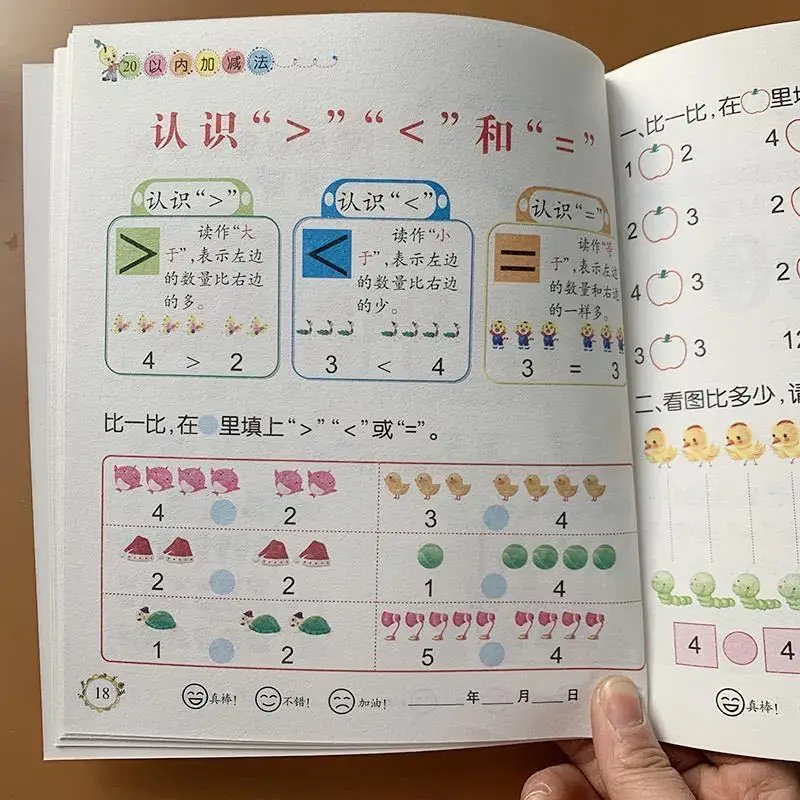 20以内加减法
认识“>”“<”和“=”
认识“>”
> 读作“大
于”,表示左边
的数量比右边
的多。
4 > 2
认识“<”
< 读作“小
于”,表示左边
的数量比右边
的少。
3 < 4
认识“=”
= 读作“等
于”,表示左边
的数量和右边
的一样多。
3 = 3
比一比,在 里填上“>”“<”或“=”。
4 2
3 4
2 2
1 4
1 2
5 4
18
真棒! 不错! 加油! 年 月 日
一、比一比,在 里填
1 2 4
2 3 2
4 3 2
3 3 12
二、看图比多少,请
4 4
真棒!